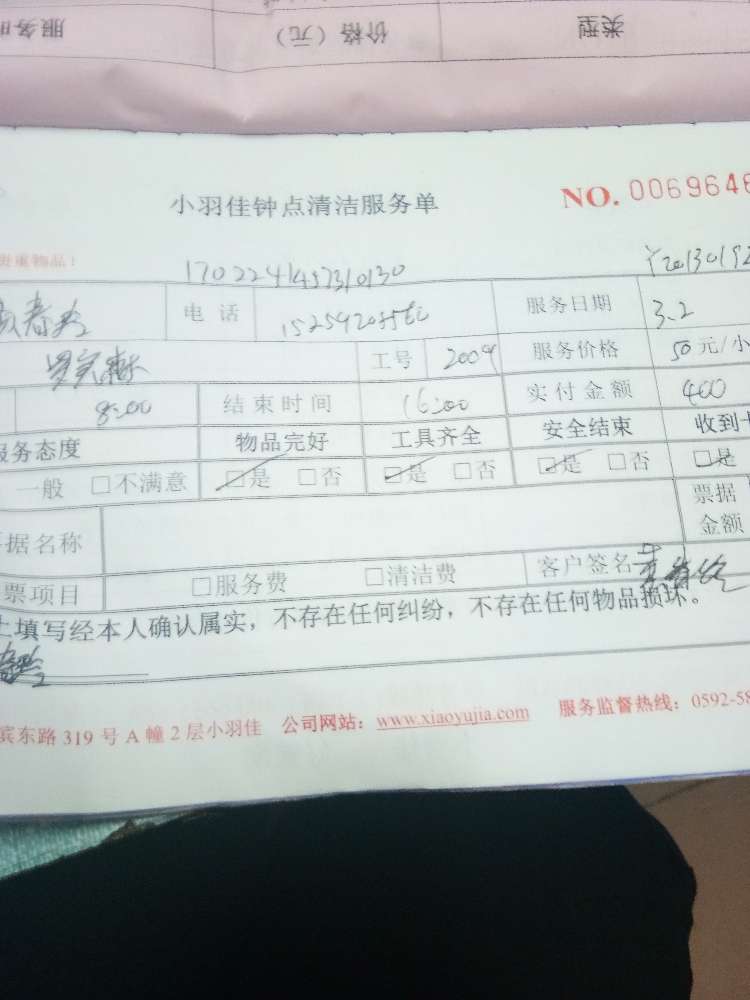 服务 价格（元） 类型
小羽佳钟点清洁服务单 NO. 0069648
贵重物品：
电话 服务日期 3.2
工号 2004 服务价格 50元/小
8:00 结束时间 16:00 实付金额 400
服务态度 物品完好 工具齐全 安全结束 收到
一般 □不满意 ☑是 □否 ☑是 □否 ☑是 □否 ☑是
据名称 票据
金额
票项目 □服务费 □清洁费 客户签名
上填写经本人确认属实，不存在任何纠纷，不存在任何物品损坏。
宾东路319号A幢2层小羽佳 公司网站：www.xiaoyujia.com 服务监督热线：0592-58